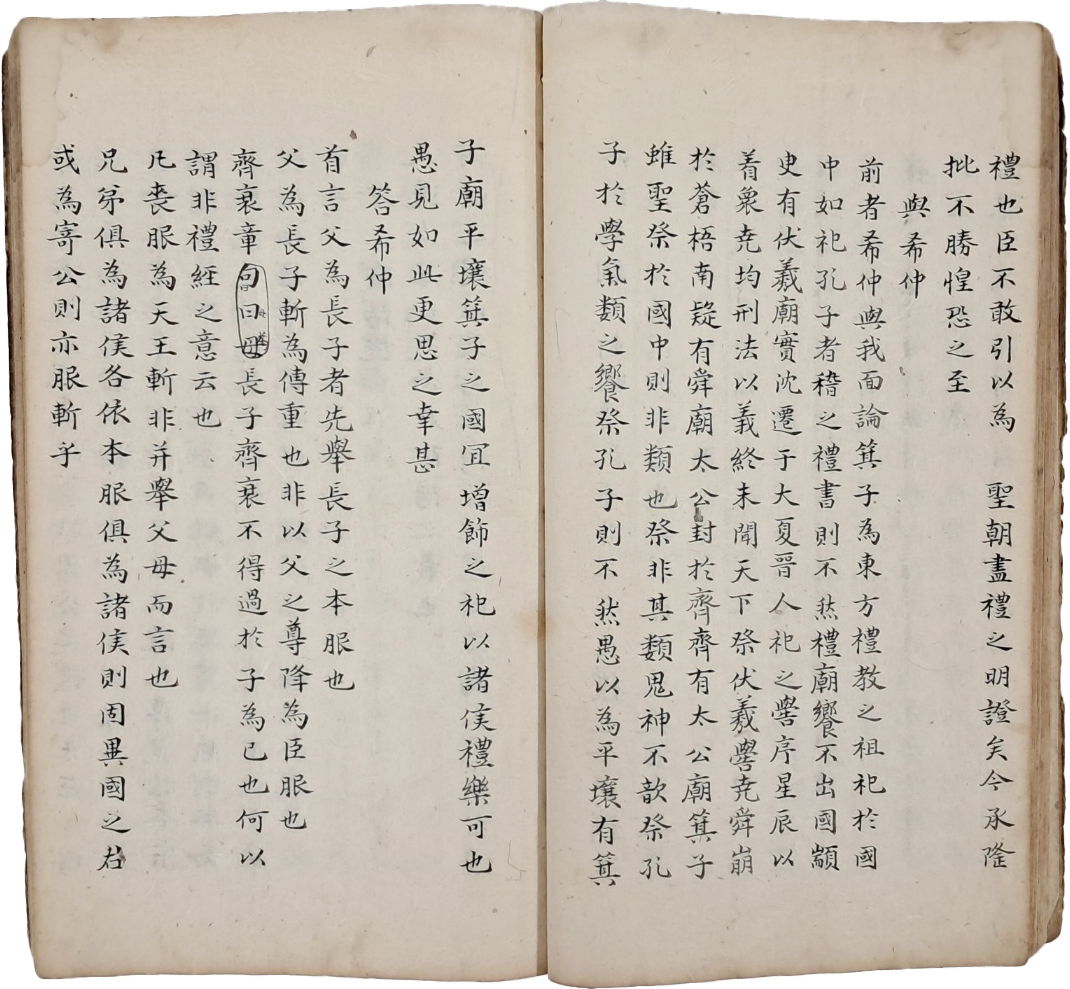 禮也臣不敢引以為　聖朝盡禮之明證矣今承隆
批不勝惶恐之至
與希仲
前者希仲與我面論箕子為東方禮教之祖祀於國
中如祀孔子者稽之禮書則不然禮廟饗不出國顓
史有伏羲廟實沈遷于大夏晉人祀之嚳序星辰以
着衆堯均刑法以義終未聞天下祭伏羲嚳堯舜崩
於蒼梧南疑有舜廟太公封於齊齊有太公廟箕子
雖聖祭於國中則非類也祭非其類鬼神不歆祭孔
子於學氣類之饗祭孔子則不然愚以為平壤有箕
子廟平壤箕子之國冝增飾之祀以諸侯禮樂可也
愚見如此更思之幸甚
答希仲
首言父為長子者先舉長子之本服也
父為長子斬為傳重也非以父之尊降為臣服也
齊衰章句曰母長子齊衰不得過於子為己也何以
謂非禮經之意云也
凡喪服為天王斬非并舉父母而言也
兄弟俱為諸侯各依本服俱為諸侯則固異國之君
或為寄公則亦服斬乎